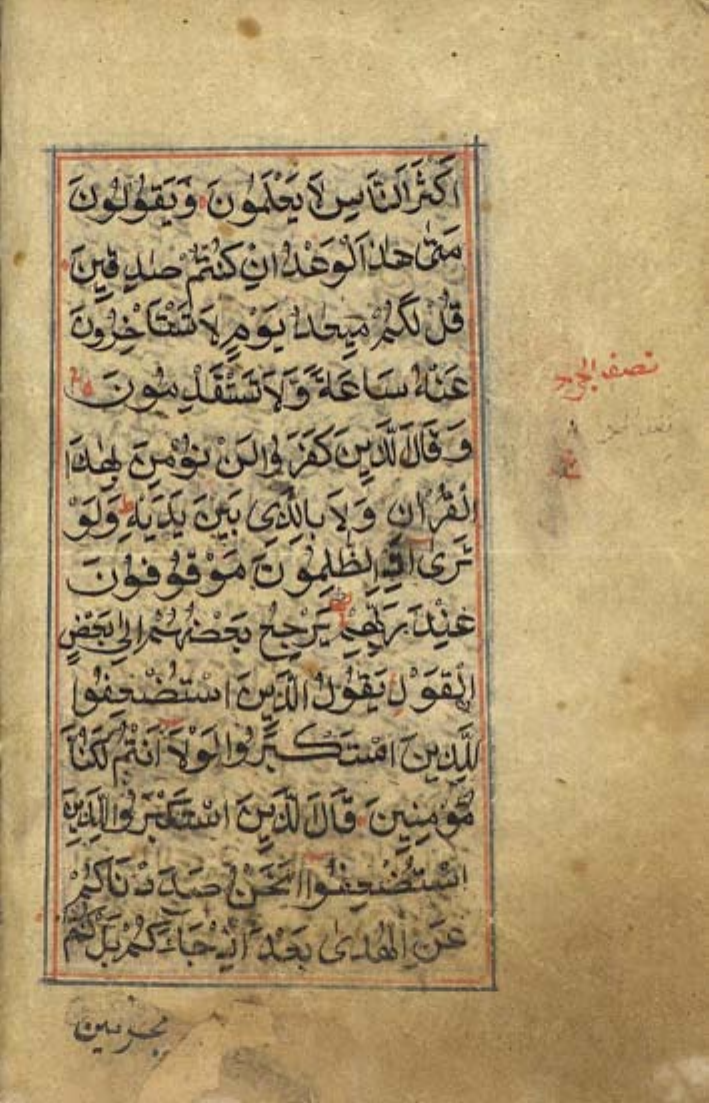 اَكْثَرَ النَّاسِ لَا يَعْلَمُونَ وَيَقُولُونَ
مَتٰى هٰذَا الْوَعْدُ اِنْ كُنْتُمْ صٰدِقِينَ
قُلْ لَكُمْ مِيعَادُ يَوْمٍ لَا تَسْتَأْخِرُونَ
عَنْهُ سَاعَةً وَّلَا تَسْتَقْدِمُونَ
وَقَالَ الَّذِينَ كَفَرُوا لَنْ نُؤْمِنَ بِهٰذَا
الْقُرْاٰنِ وَلَا بِالَّذِى بَيْنَ يَدَيْهِ وَلَوْ
تَرٰى اِذِ الظّٰلِمُونَ مَوْقُوفُونَ
عِنْدَ رَبِّهِمْ يَرْجِعُ بَعْضُهُمْ اِلٰى بَعْضٍ
الْقَوْلَ يَقُولُ الَّذِينَ اسْتُضْعِفُوا
لِلَّذِينَ اسْتَكْبَرُوا لَوْلَا اَنْتُمْ لَكُنَّا
مُؤْمِنِينَ قَالَ الَّذِينَ اسْتَكْبَرُوا لِلَّذِينَ
اسْتُضْعِفُوا اَنَحْنُ صَدَدْنَاكُمْ
عَنِ الْهُدٰى بَعْدَ اِذْ جَاءَكُمْ بَلْ كُنْتُمْ
مجرمين
نصف الجزء